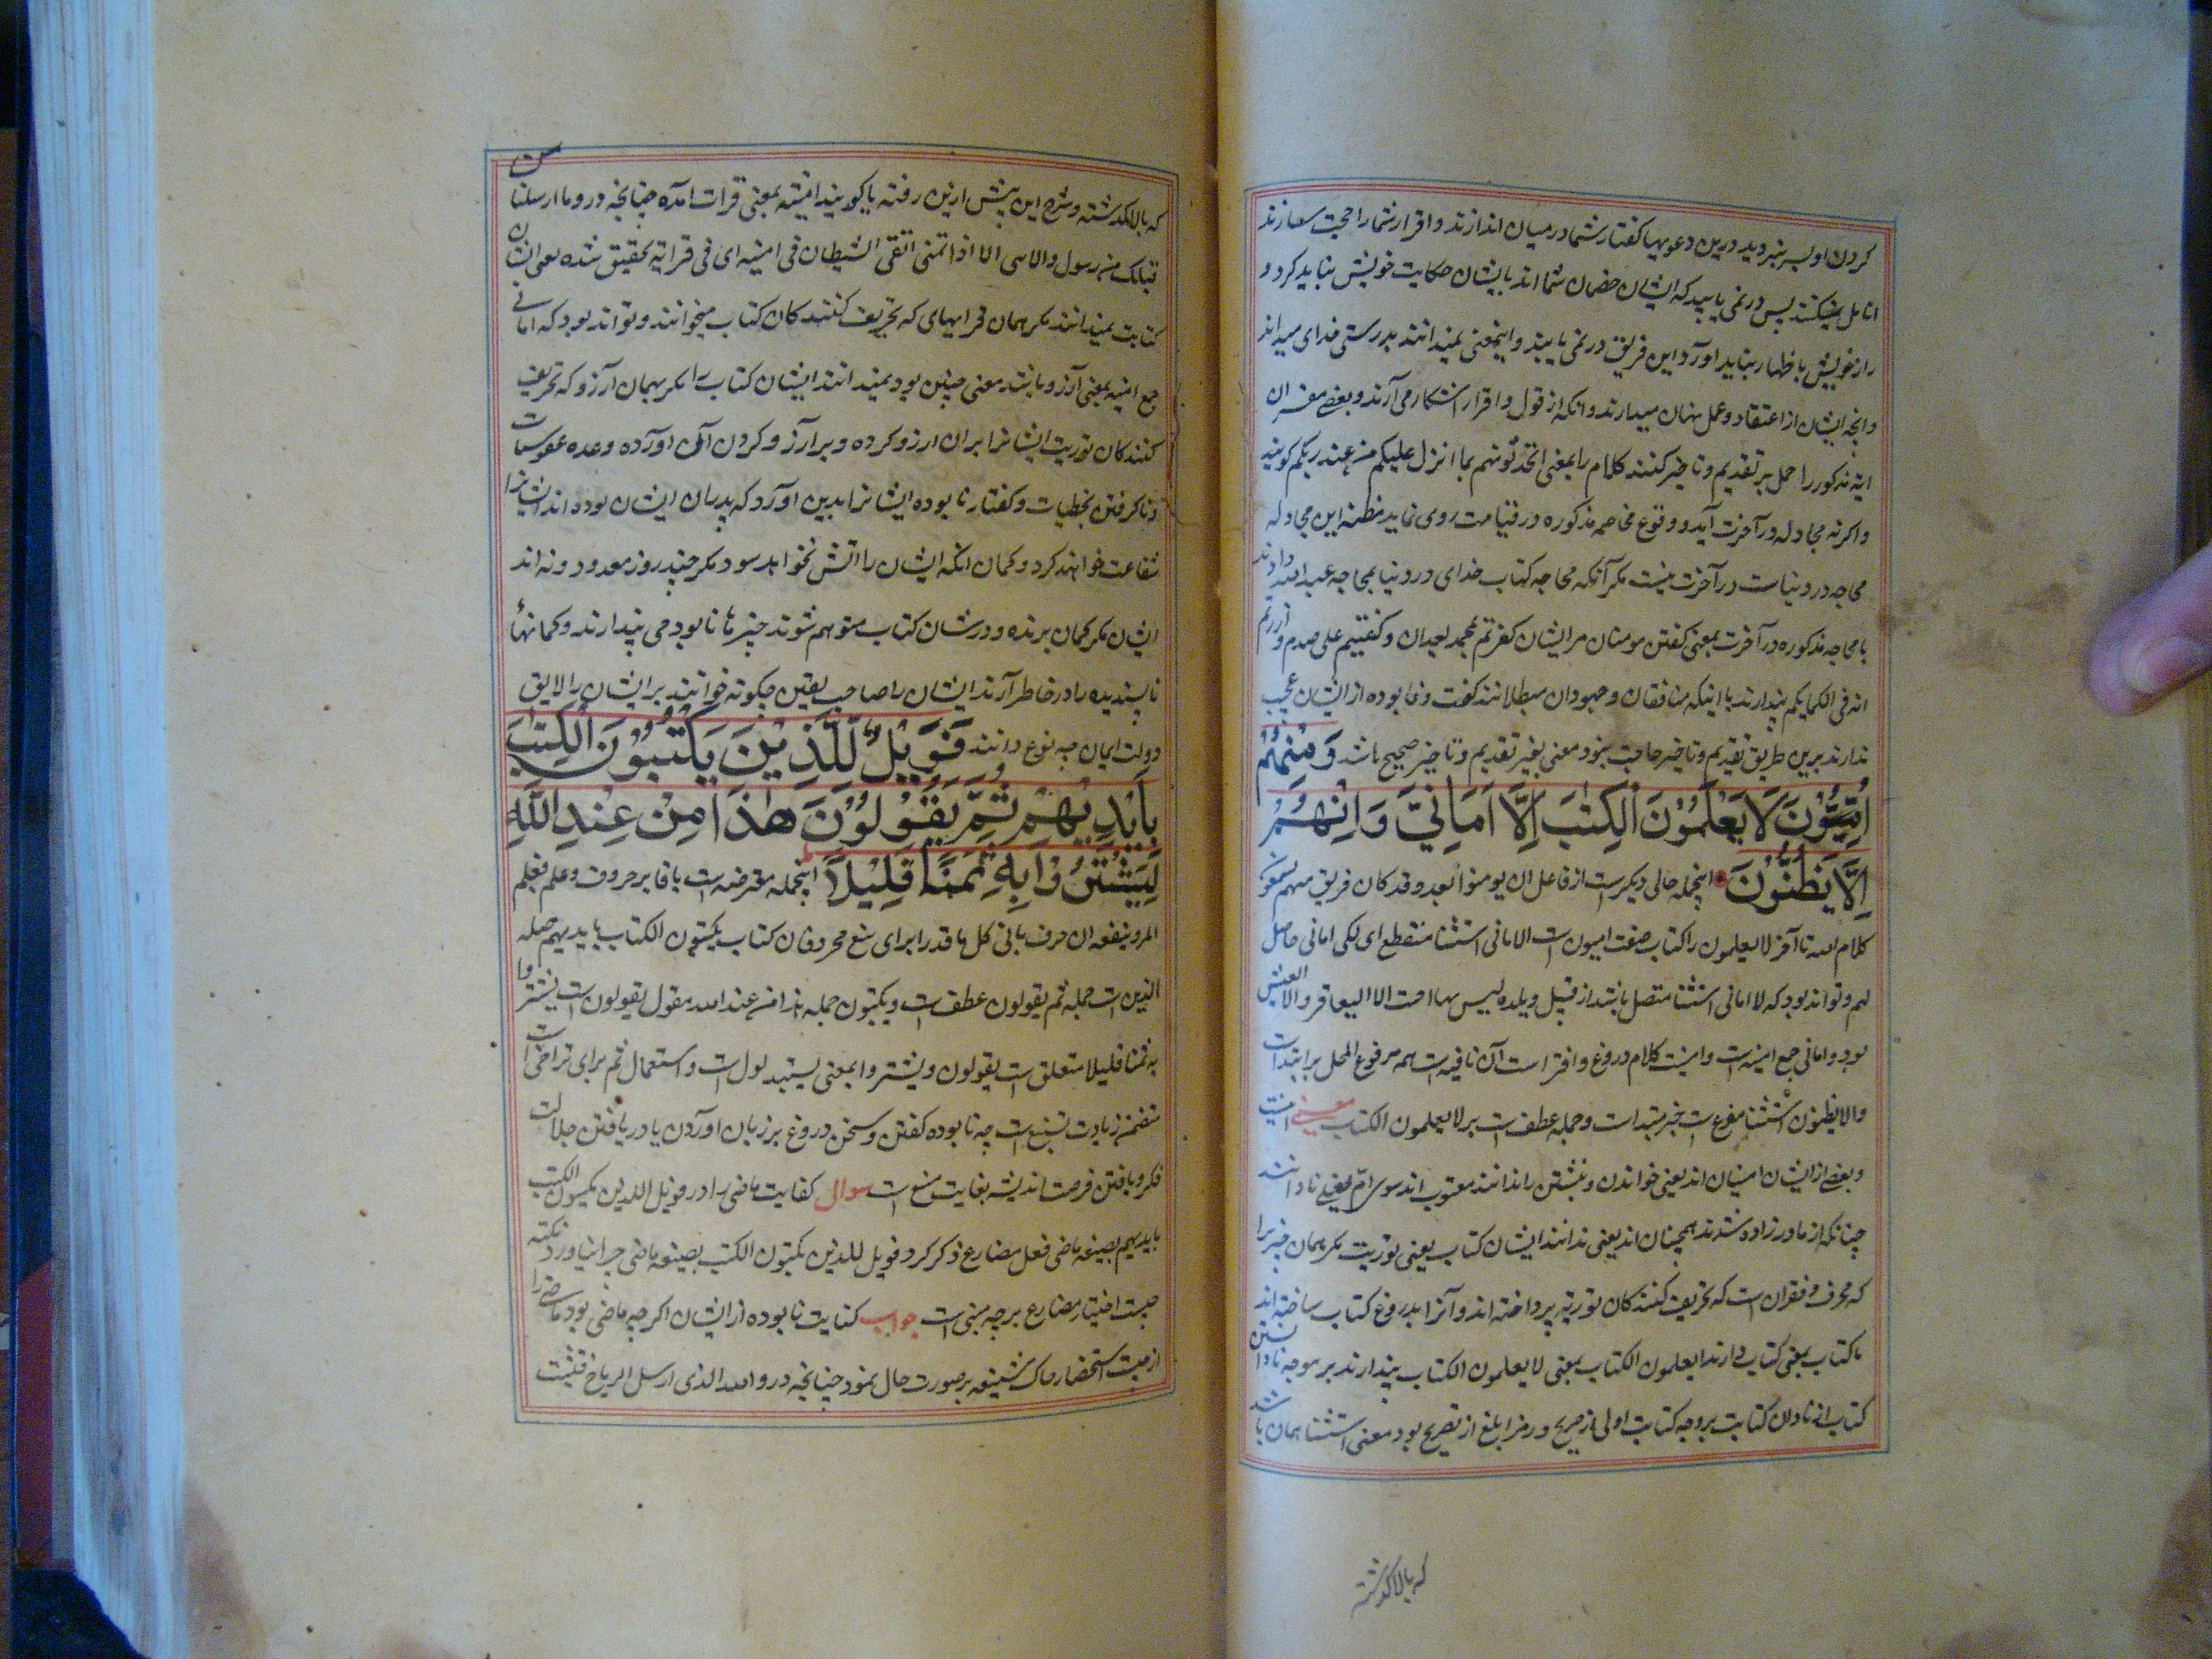 کردن او بسر برید درین دعویها کفتار شما در میان اندازند و اقرار شما را حجت سازند
پس در نمی یابید که ایشان خصمان شما اند بایشان حکایت خویش نباید کرد و
راز خویش باظهار نباید آورد این فریق در نمی یابند و اینمعنی نمیدانند بدرستی خدای میداند
وانچه ایشان از اعتقاد و عمل پنهان میدارند وانکه از قول و اقرار اشکار می آرند و بعضی مفسران
ایة مذکور را حمل بر تقدیم و تاخیر کنند کلام را بمعنی اتحدثونهم بما انزل علیکم من عند ربکم کویند
واکرنه مجادله در آخرت آید و وقوع مخاصمه مذکوره در قیامت روی نماید مظنه این مجادله
محاجه در دنیاست در آخرت نیست مکر آنکه محاجه کتاب خدای در دنیا بمحاجه عند الله دارند
یا محاجه مذکوره در آخرت بمعنی کفتن مومنان مر ایشان کفرتم بمحمد بعد ان
پندارند با اینکه منافقان و جهودان مبطلانند کفت و نابوده از ایشان عجب
ندارند برین طریق تقدیم و تاخیر حاجت نبود معنی بغیر تقدیم و تاخیر صحیح باشد وَمِنْهُمْ
اُمِّیُّوْنَ لَا یَعْلَمُوْنَ الْکِتٰبَ اِلَّا اَمَانِیَّ وَاِنْهُمْ
اِلَّا یَظُنُّوْنَ اینجمله حالی دیکرست از فاعل ان یومنوا بعد وقد کان فریق منهم یسمعون
کلام الله تا آخر لا یعلمون را کتاب صفت امیون است الا امانی استثنا منقطع ای لکن امانی حاصل
لهم و تواند بود که الا امانی استثنا متصل باشد از قبیل وبلدة لیس بها الا الیعافر والا العیس
بود وامانی جمع امنیه است وامنیت کلام دروغ و افتراست ان نافیه است هم مرفوع المحل بر ابتداست
والا یظنون استثنا مفرغ است خبر مبتداست و جمله عطف است بر لا یعلمون الکتاب معنی
و بعضی از ایشان امیان اند یعنی خواندن و نبشتن را ندانند منسوب اند سوی ام یعنی نادانند
چنانکه از مادر زاده شدند همچنان اند یعنی ندانند ایشان کتاب یعنی توریت مکر همان چیز را
که تحریف کنندکان توریة پرداخته اند و آنرا بدروغ کتاب ساخته اند
یا کتاب بمعنی کتابت دارند لا یعلمون الکتاب بمعنی لا یعلمون الکتاب پندارند
کتابت بر وجه کنایت اولی از صریح و رمز ابلغ از تصریح بود معنی استثنا همان باشد
که بالا کذشته
که بالا کذشته و شرح این پیش ازین رفته یا کویند امنیة بمعنی قرات امده چنانچه در وما ارسلنا من
قبلک من رسول ولا نبی الا اذا تمنی القی الشیطان فی امنیته ای فی قراته تحقیق شده یعنی ایشان
کتابت نمیدانند مکر همان قراتهای که تحریف کنندکان کتاب میخوانند و تواند بود که امانی
جمع امنیه بمعنی آرزو باشد معنی چنین بود نمیدانند ایشان کتاب را مکر بهمان آرزو که تحریف
کنندکان توریت ایشانرا بران ارزو کرده و بر آرزو کردن آورده وعده عفو سیئات
و ناکرفتن بخطیات و کفتار نابوده ایشانرا بدین آورد که پدران ایشان بوده اند ایشانرا
شفاعت خواهند کرد و کمان انکه ایشان را اتش نخواهد سود مکر چند روز معدود و نه اند
ایشان مکر کمان برنده و در شان کتاب متوهم شوند چیزها نابود می پندارند و کمانها
ناپسندیده را در خاطر آرند ایشان را صاحب یقین چکونه خوانند بر ایشان را لایق
دولت ایمان چه نوع دانند فَوَیْلٌ لِّلَّذِیْنَ یَکْتُبُوْنَ الْکِتٰبَ
بِاَیْدِیْهِمْ ثُمَّ یَقُوْلُوْنَ هٰذَا مِنْ عِنْدِ اللّٰهِ
لِیَشْتَرُوْا بِهٖ ثَمَنًا قَلِیْلًا اینجمله معترضه است با فا بر حروف وعلم فعلم
المرء ینفعه ان سوف یاتی کل ما قدرا برای منع محرفان کتاب یکتبون الکتاب بایدیهم صله
الذین است جمله ثم یقولون عطف است و یکتبون جمله هذا من عند الله مقول یقولون است لیشتروا
به ثمنا قلیلا متعلق است بیقولون و یشتروا بمعنی یستبدلون است و استعمال ثم برای تراخی است
متضمن زیادت تشنیع است چه نابوده کفتن و سخن دروغ بر زبان اوردن با دریافتن جلالت
فکر و یافتن فرصت اندیشه بغایت منع است سوال کتابت ماضی را در فویل للذین یکتبون الکتب
بایدیهم بصیغه ماضی فعل مضارع ذکر کرد فویل للذین کتبون الکتب بصیغه ماضی چرا نیاورد نکته
چیست اختیار مضارع بر چه مبنی است جواب کتابت نابوده از ایشان اکرچه ماضی بود ماضی را
از جهت استحضار بر صورت حال نمود چنانچه در والله الذی ارسل الریاح فتثیر